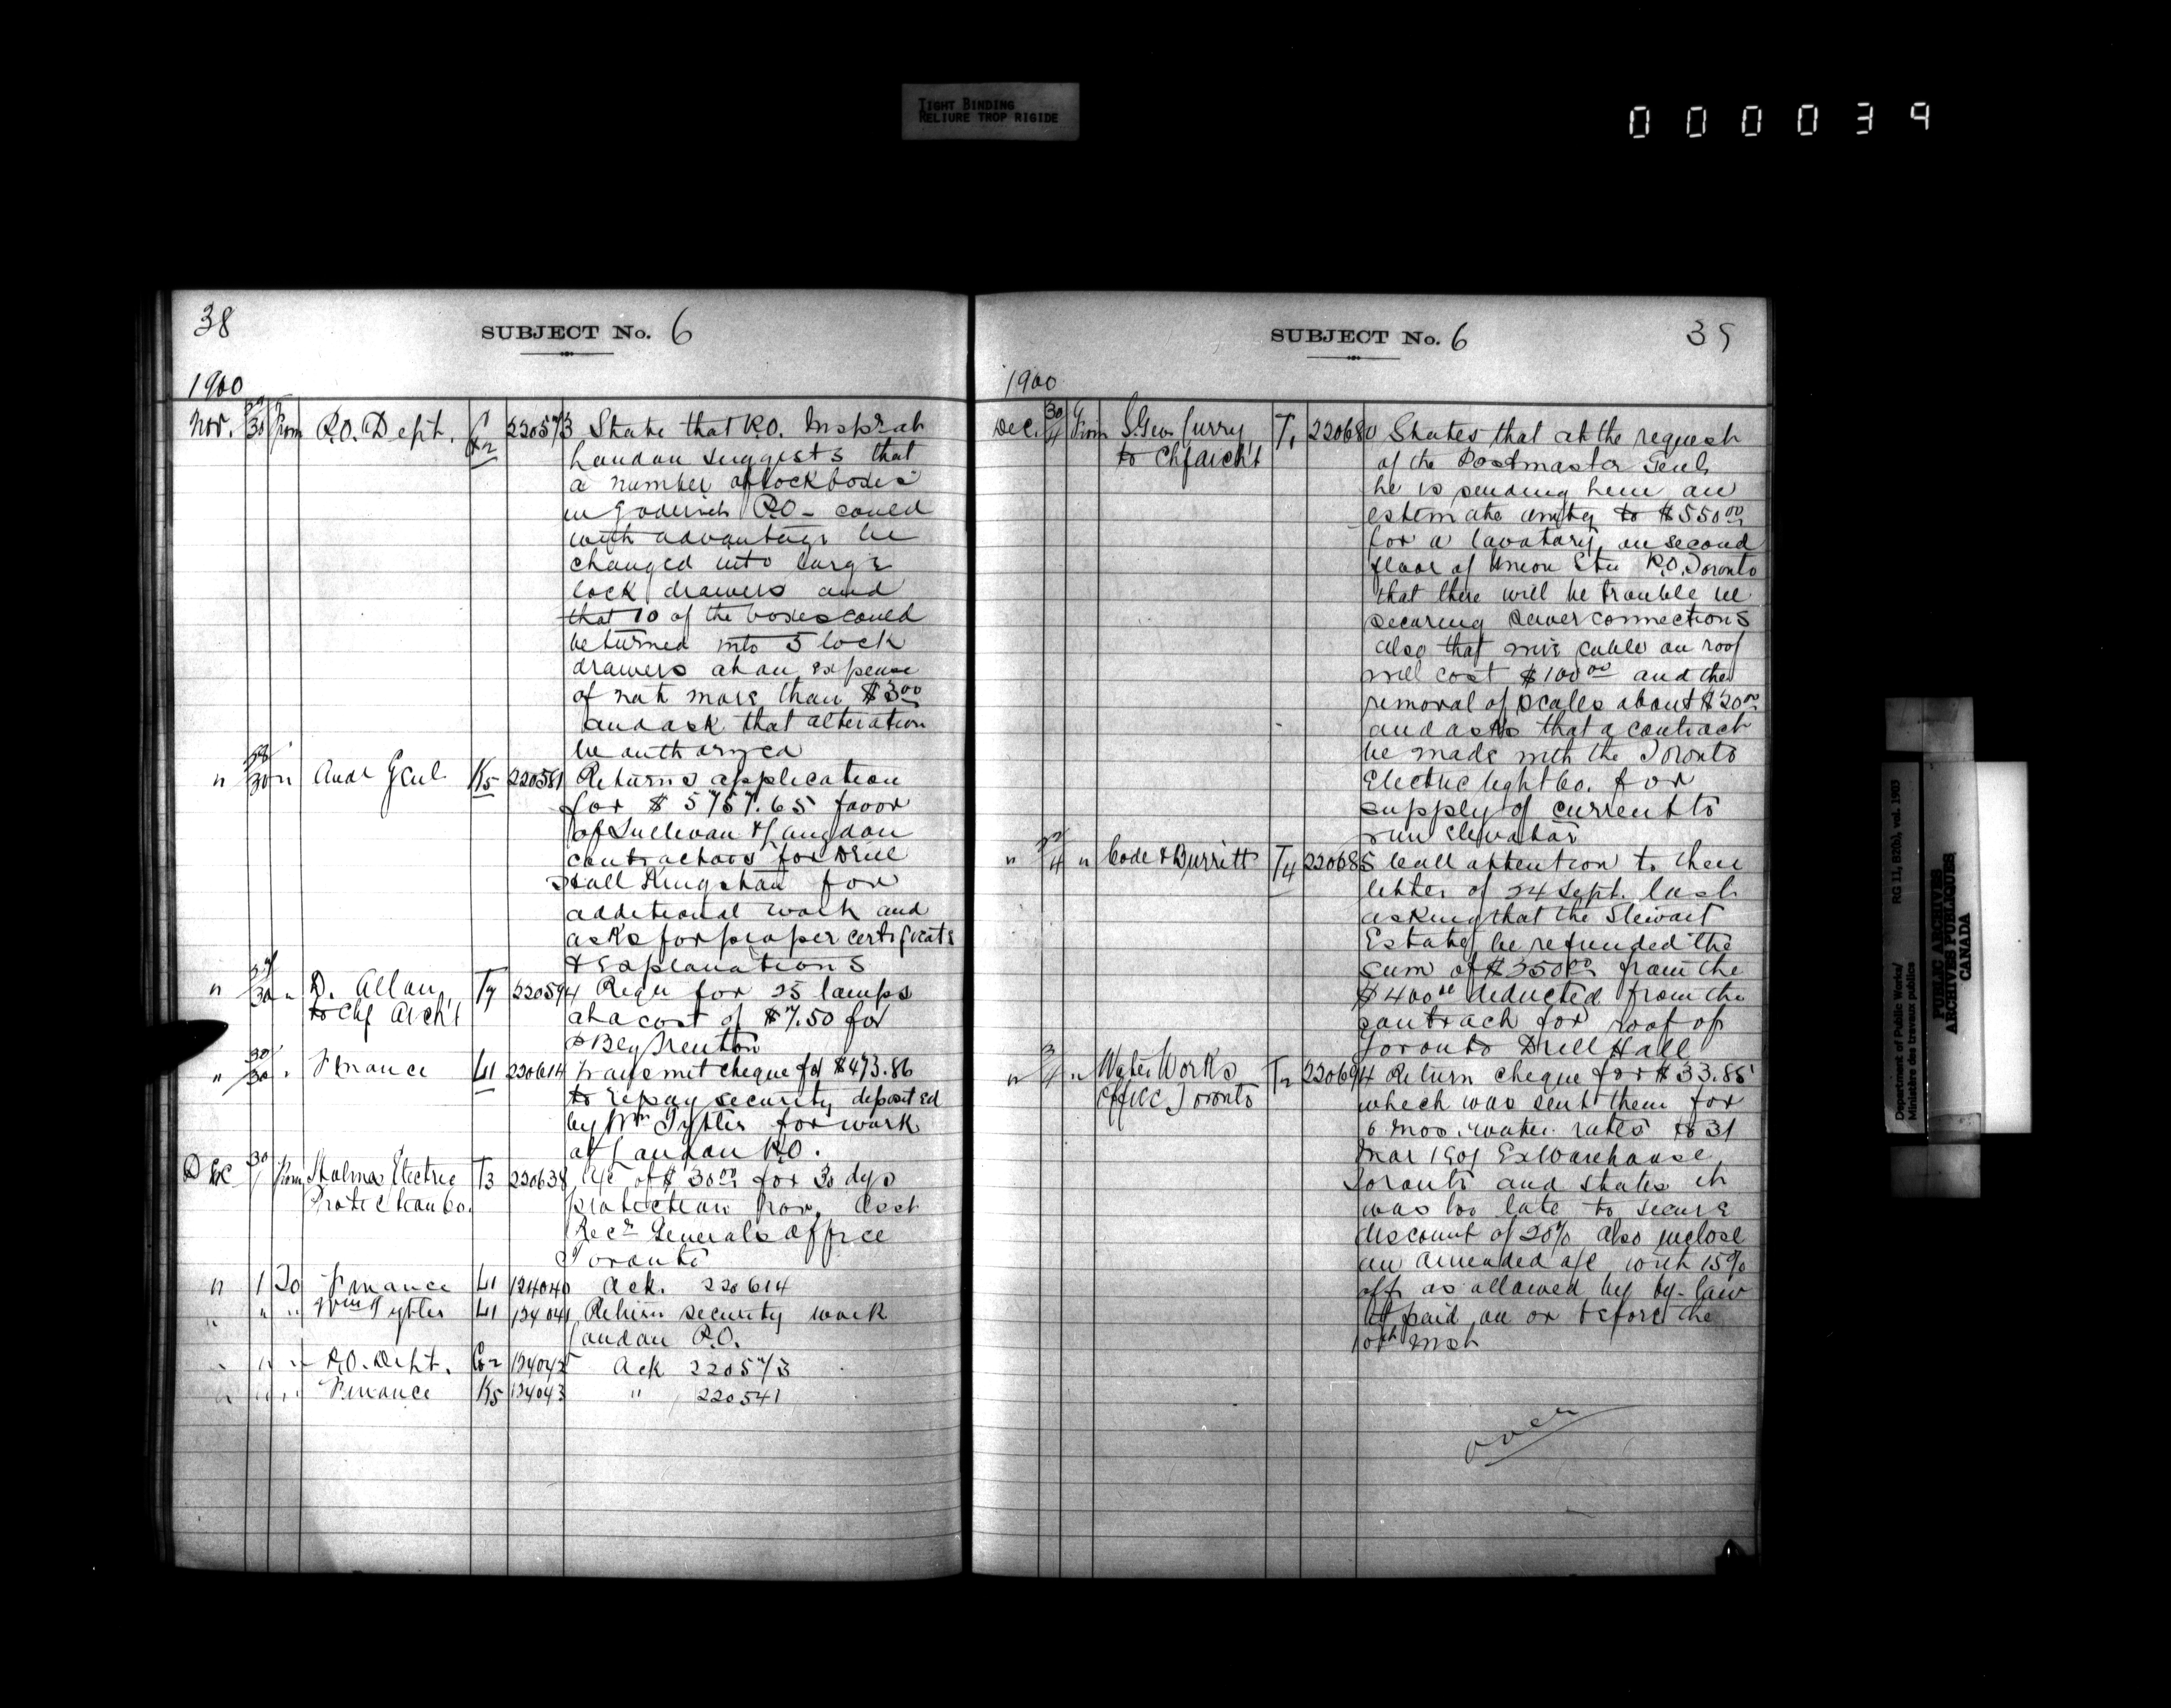 TIGHT BINDING
RELIURE TROP RIGIDE
000039
38
SUBJECT No. 6
1900
Nov. 29/30 from P.O. Dept. G2 220573 State that P.O. Inspr at
London suggests that
a number of lock boxes
in Goderich P.O. could
with advantage be
changed into large
lock drawers and
that 10 of the boxes could
be turned into 5 lock
drawers at an expense
of not more than $3.00
and ask that alteration
be authorized
" 28/30 " Audr Genl K5 220581 Returns application
for $5757.65 favor
of Sullivan & Langdon
contractors for Drill
Hall Kingston for
additional work and
asks for proper certificate
& Explanations
" 29/30 " D. Allan T7 220594 Requ for 25 lamps
to Chf Archt at a cost of $7.50 for
P Bldg Trenton
" 30/30 " Finance L1 220614 Transmit cheque for $473.86
to repay security deposited
by Wm Tytler for work
at London P.O.
Dec 30/1 from Holmes Electric T3 220638 a/c of $30.00 for 30 dys
Protection Co. protection Asst
Recr Generals office
Toronto
" 1 To Finance L1 124040 Ack. 220614
" " " Wm Tytler L1 124041 Return security work
London P.O.
" " " P.O. Dept. G2 124042 Ack 220573
" " " Finance K5 124043 " 220541
SUBJECT No. 6
39
1900
Dec. 30/4 from S. Geo. Curry T1 220680 States that at the request
to Chf Archt of the Postmaster Genl
he is sending him an
estimate amtg to $550.00
for a lavatory on second
floor of Union Stn P.O. Toronto
that there will be trouble in
securing sewer connections
also that wire cable on roof
will cost $100.00 and the
removal of scales about $20.00
and asks that a contract
be made with the Toronto
Electric light Co. for
supply of current to
run Elevator
" 4 " Code & Burritt T4 220685 Call attention to their
letter of 24 Sept. last
asking that the Stewart
Estate be refunded the
sum of $350.00 from the
$400.00 deducted from the
contract for roof of
Toronto Drill Hall
" 3/4 " Water Works T2 220694 Return cheque for $33.85
Office Toronto which was sent them for
6 mos. water rates to 31
Mar 1901 Ex Warehouse
Toronto and states it
was too late to secure
discount of 20% also inclose
an amended a/c with 15%
off as allowed by by-law
if paid on or before the
10th inst
over
Department of Public Works/ RG 11, B2(b), vol. 1903
Ministère des travaux publics
PUBLIC ARCHIVES
ARCHIVES PUBLIQUES
CANADA